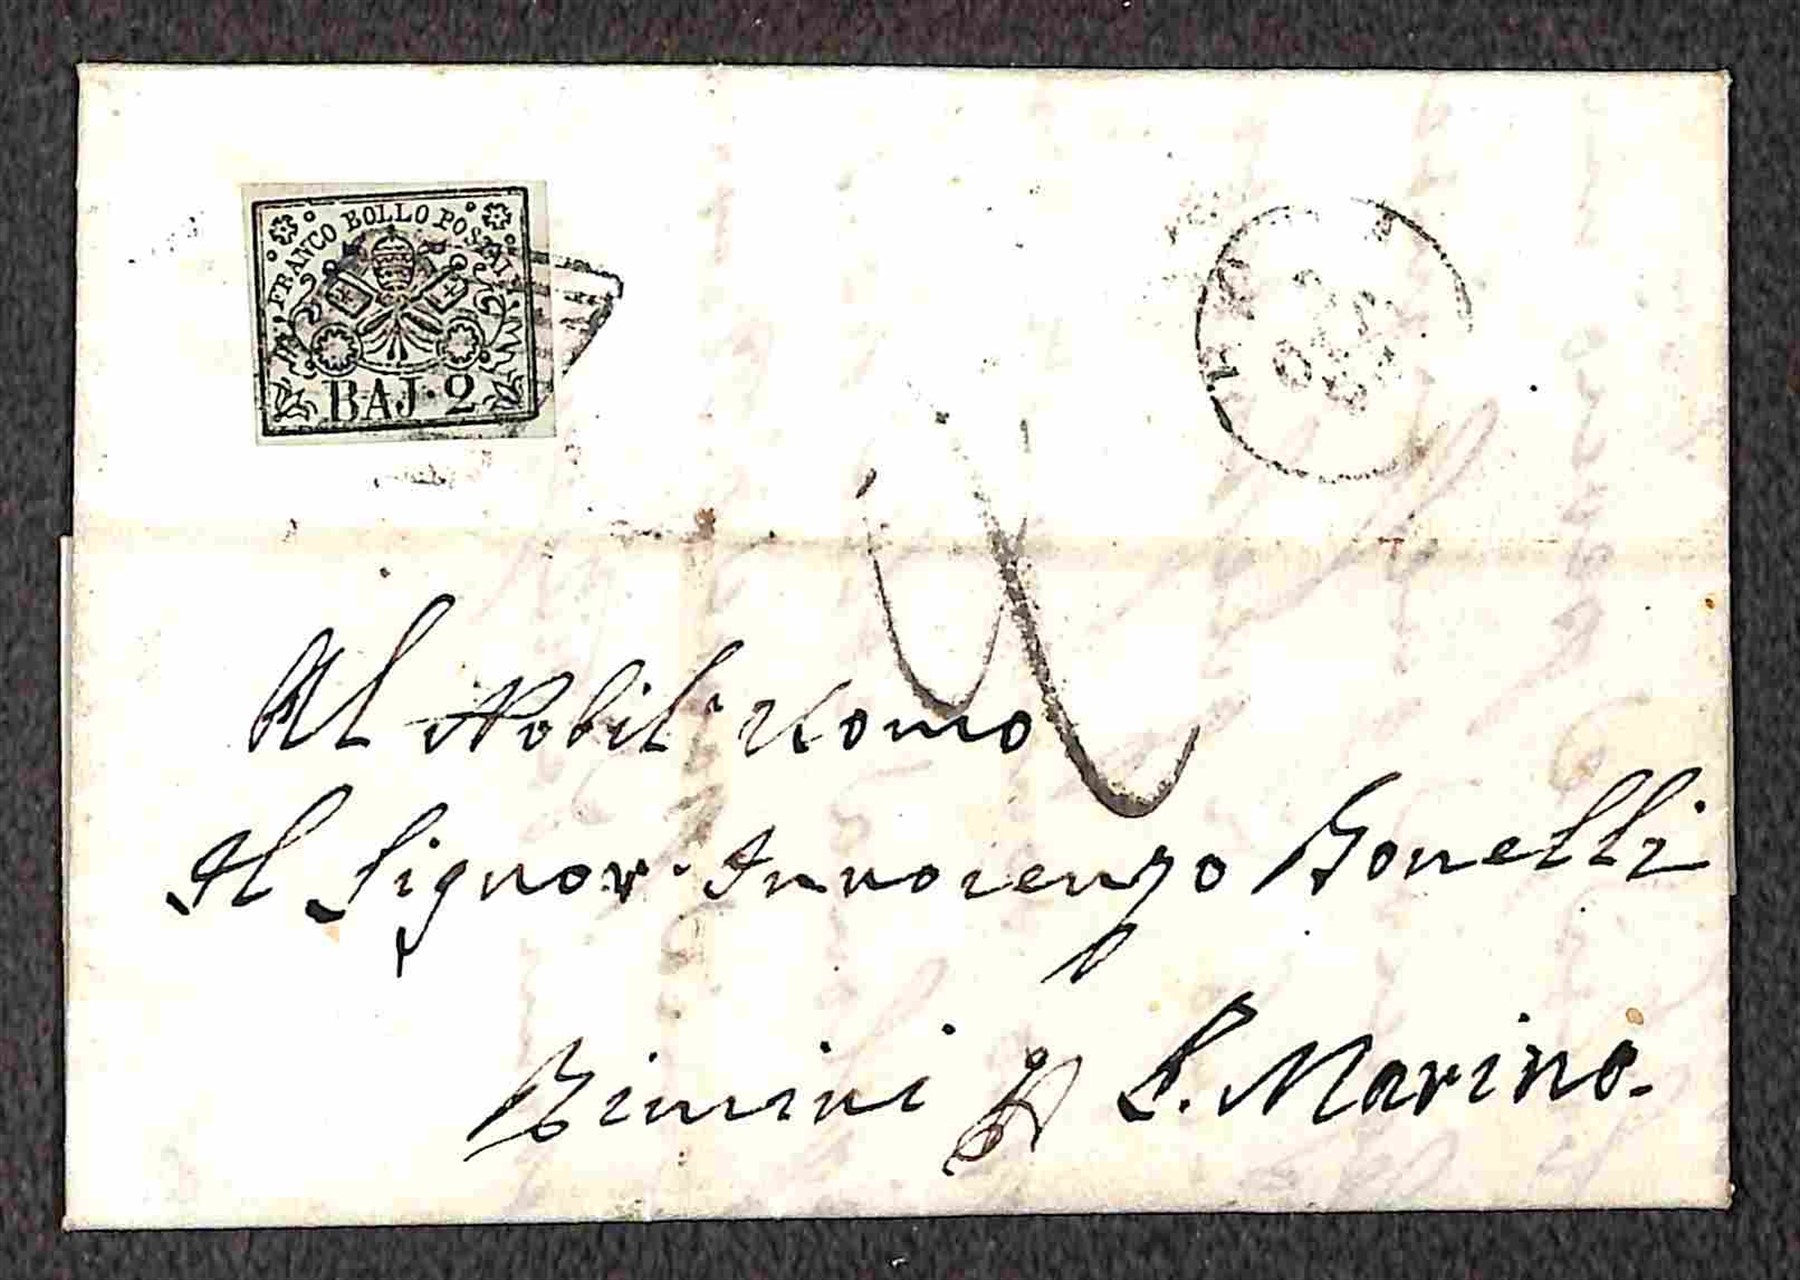 FRANCO BOLLO POSTALE
BAJ. 2
Al Nobil' Uomo
Il Signor Innocenzo Bonelli
Rimini p S. Marino.